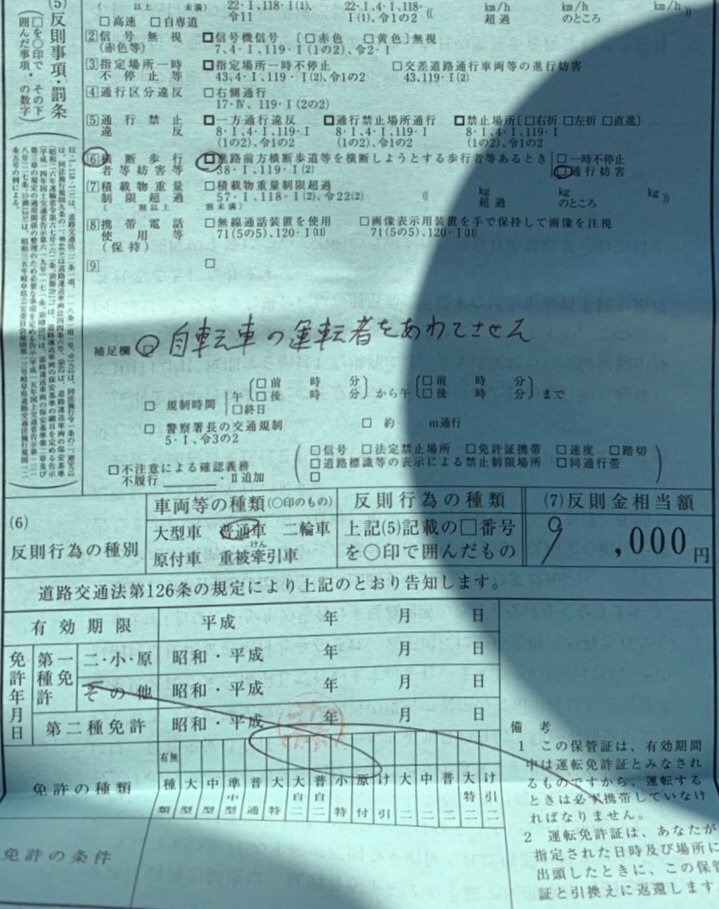 (5)反則事項・罰条
(□を○印で囲んだ事項、その下の数字)
22・Ⅰ、118・Ⅰ(1)、
令11
22・Ⅰ、4・Ⅰ、118・
Ⅰ(1)、令1の2
km/h
超過
km/h
のところ
□高速 □自専道
[2]信号無視
(赤色等)
□信号機信号 〔□赤色 □黄色〕無視
7、4・Ⅰ、119・Ⅰ(1の2)、令2・Ⅰ
[3]指定場所一時
不停止等
□指定場所一時不停止
43、4・Ⅰ、119・Ⅰ(2)、令1の2
□交差道路通行車両等の進行妨害
43、119・Ⅰ(2)
[4]通行区分違反
□右側通行
17・Ⅳ、119・Ⅰ(2の2)
[5]通行禁止
違反
□一方通行違反
8・Ⅰ、4・Ⅰ、119・Ⅰ
(1の2)、令1の2
□通行禁止場所通行
8・Ⅰ、4・Ⅰ、119・Ⅰ
(1の2)、令1の2
□禁止場所〔□右折 □左折 □直進〕
8・Ⅰ、4・Ⅰ、119・Ⅰ
(1の2)、令1の2
[6]横断歩行
者等妨害等
□進路前方横断歩道等を横断しようとする歩行者等あるとき
38・Ⅰ、119・Ⅰ(2)
□一時不停止
□通行妨害
[7]積載物重量
制限超過
□積載物重量制限超過
57・Ⅰ、118・Ⅰ(2)、令22(2)
kg
超過
kg
のところ
kg
[8]携帯電話
使用等
(保持)
□無線通話装置を使用
71(5の5)、120・Ⅰ(11)
□画像表示用装置を手で保持して画像を注視
71(5の5)、120・Ⅰ(11)
[9] □
補足欄 自転車の運転者をあわてさせん
□ 規制時間
午
□前
□後
時 分
から午
□前
□後
時 分
まで
□終日
□ 警察署長の交通規制
5・Ⅰ、令3の2
□ 約 m通行
□不注意による確認義務
不履行 ・Ⅱ追加
□信号 □法定禁止場所 □免許証携帯 □速度 □踏切
□道路標識等の表示による禁止制限場所 □同通行帯
□
(6)
反則行為の種別
車両等の種類(○印のもの)
大型車 普通車 二輪車
原付車 重被牽引車
けん
反則行為の種類
上記(5)記載の□番号
を○印で囲んだもの
(7)反則金相当額
9,000円
道路交通法第126条の規定により上記のとおり告知します。
有効期限 平成 年 月 日
免許年月日
第一種免許
二・小・原 昭和・平成 年 月 日
その他 昭和・平成 年 月 日
第二種免許 昭和・平成 年 月 日
免許の種類
有無
種類
大型
中型
準中型
普通
大特
大自二
普自二
小特
原付
け引
大二
中二
普二
大特二
け引二
免許の条件
備考
1 この保管証は、有効期間
中は運転免許証とみなされ
るものですから、運転する
ときは必ず携帯していなけ
ればなりません。
2 運転免許証は、あなたが
指定された日時及び場所に
出頭したときに、この保管
証と引換えに返還します